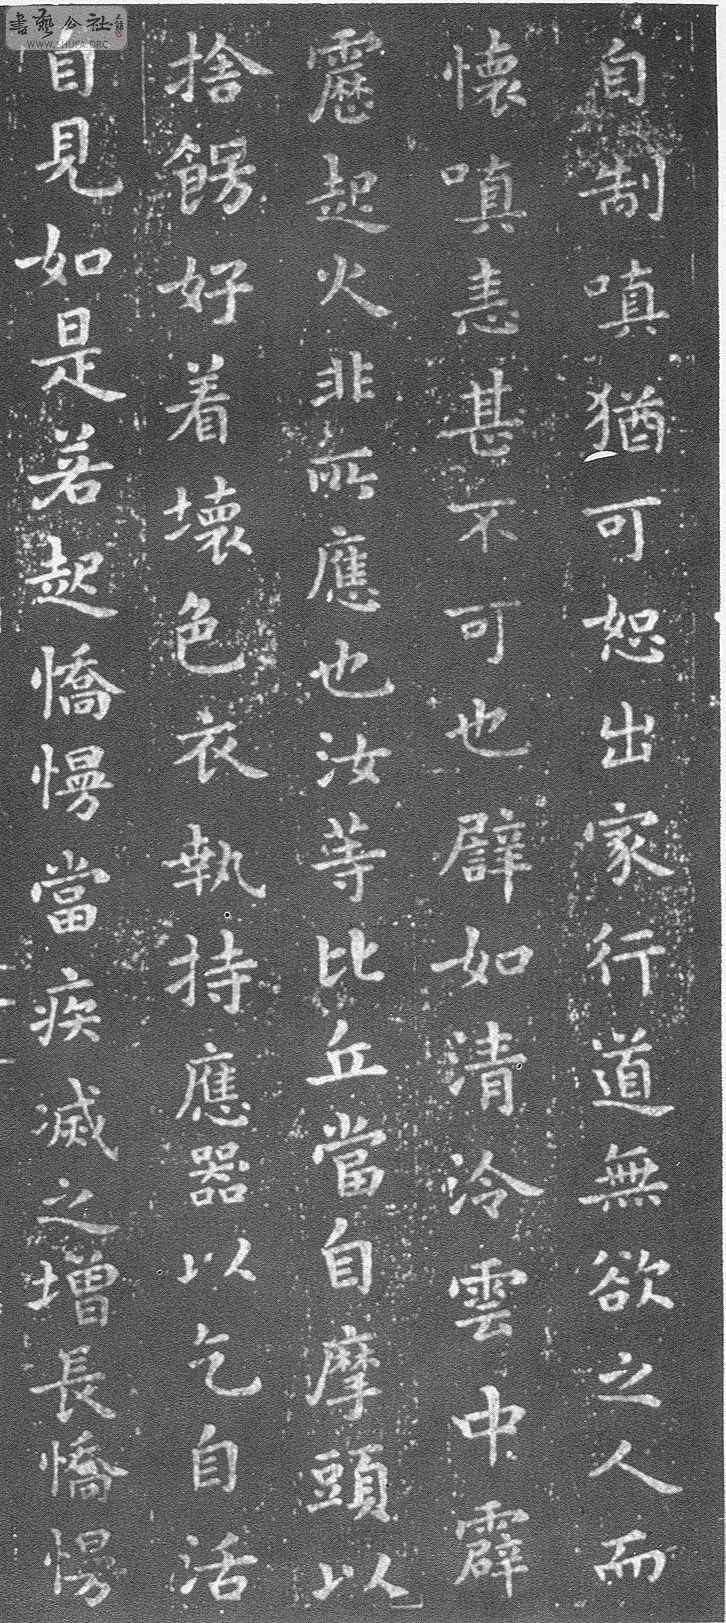 自制嗔猶可恕出家行道無欲之人而
懷嗔恚甚不可也譬如清冷雲中霹
靂起火非所應也汝等比丘當自摩頭以
捨餝好着壞色衣執持應器以乞自活
自見如是若起憍慢當疾滅之增長憍慢
書藝公社
WWW.SHUFA.ORG